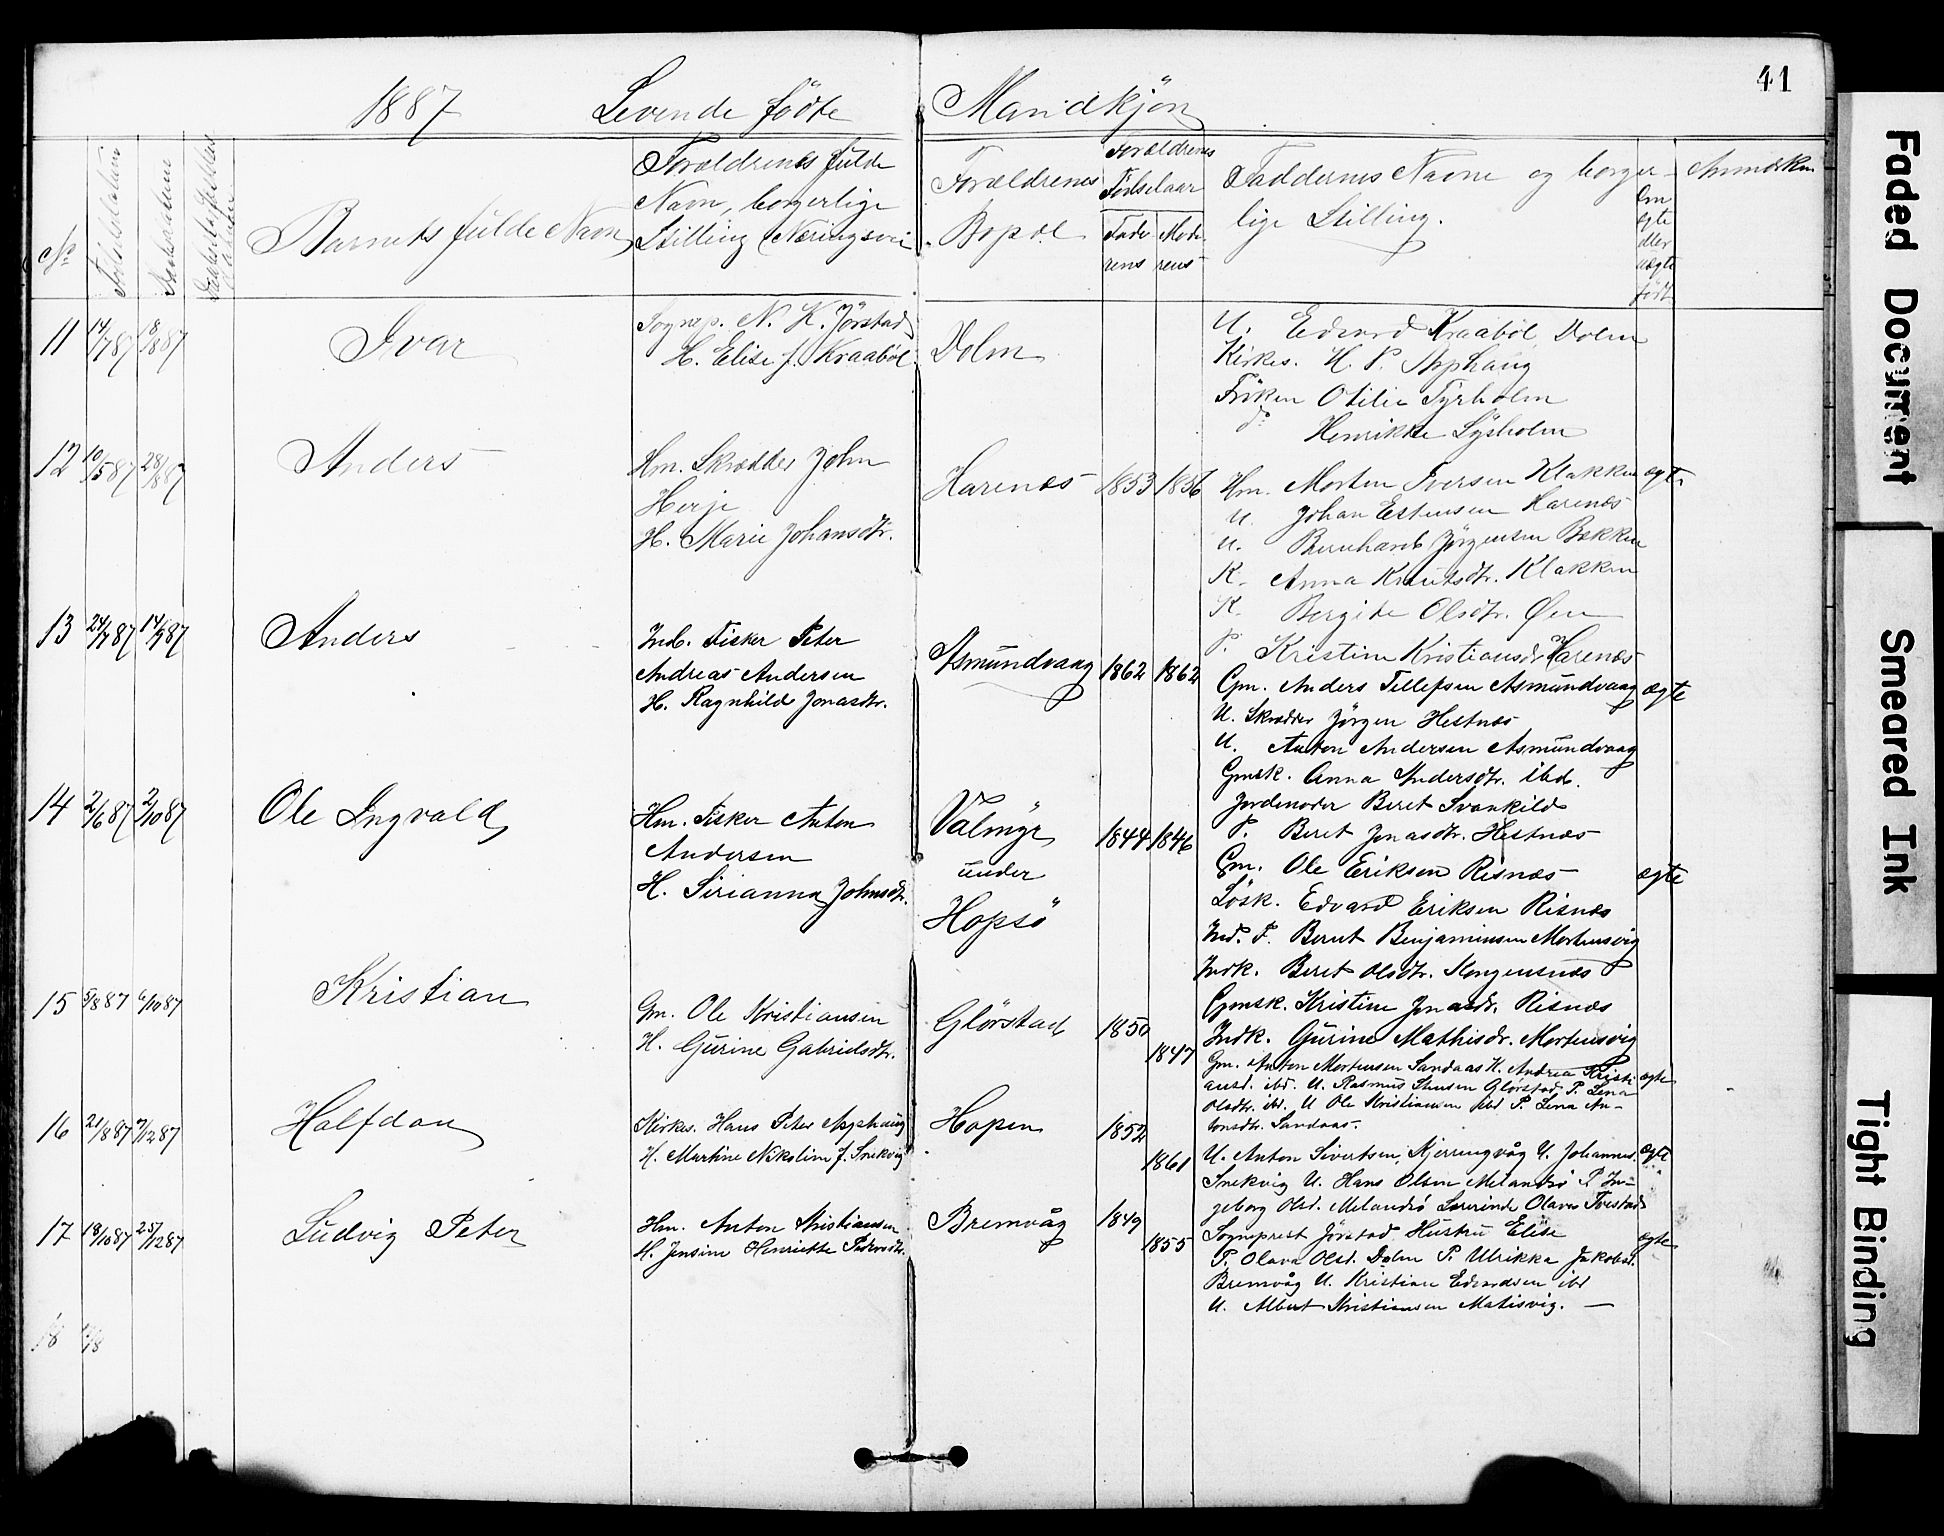 41
1887 Levende födte Mandkjön
No
Fødselsdatum
Barnets fulde Navn
Forældrenes fulde
Navn, borgerlige
Stilling (Næringsvei
Forældrenes
Bopæl
Forældrenes
Fødselaar
Fade-
rens
Mode-
rens
Faddernes Navne og borger-
lige Stilling.
Om
ægte
eller
uægte
født
Anmærkn
11 14/7 87 18/8 87 Ivar
Sognep. N. K. Jörstad
H. Elise f. Kraaböl
Dolm
U. Edvard Kraaböl, Dolm
Kirkes. H. P. Apphaug
Fröken Otilie Tyrholm
do Henrikke Lysholm
12 10/5 87 28/8 87 Anders
Hm. Skrædder John
Herje
H. Marie Johansdtr.
Harenæs 1853 1856
Hm. Morten Iversen Klakken ægte
U. Johan Estensen Harenæs
U. Bernhard Jörgensen Bekken
K. Anna Knutsdtr. Klakken
K. Bergite Olsdtr. Øen
P. Kristine Kristiansdr Harenæs
13 24/7 87 14/9 87 Anders
Ind. Fisker Peter
Andreas Andersen
H. Ragnhild Jonasdtr.
Asmundvaag 1862 1862
Gm. Anders Tellefsen Asmundvaag ægte
U. Skrædder Jörgen Hestnæs
U. Anton Andersen Asmundvaag
Gmsk. Anna Andersdtr. ibd.
Jordemoder Beret Svankild
P. Beret Jonasdtr. Hestnæs
14 2/6 87 2/10 87 Ole Ingvald
Hm. Fisker Anton
Andersen
H. Sirianna Johnsdtr.
Valmyr
under
Hopsö
1844 1846
Gm. Ole Eriksen Risnæs ægte
Lösk. Edvard Eriksen Risnæs
Ind. F. Bernt Benjaminsen Mortensvig
Indk. Beret Olsdtr. Kongensnæs
Gmsk. Kristine Jonasdr. Risnæs
Indk. Gurine Mathisdr. Mortensvig
15 5/8 87 6/10 87 Kristian
Gm. Ole Kristiansen
H. Gurine Gabrielsdtr.
Glörstad 1850
1847
Gm. Anton Mortensen Sandaas K. Andrea Kristi- ægte
ansd. ibd. U. Rasmus Stensen Glörstad P. Lena
Olsdtr. ibd. U Ole Kristiansen ibd P. Lena An-
tonsdtr. Sandaas.
16 21/8 87 4/12 87 Halfdan
Kirkes. Hans Peter Apphaug
H. Martine Nikoline f. Snekvig
Hopen 1852
1861
U. Anton Sivertsen, Kjerringvåg U. Johannes ægte
Snekvig U. Hans Olsen Melandsö P. In-
geborg Olsd. Melandsö Lærerinde Olava Tvestad
17 18/10 87 25/12 87 Ludvig Peter
Hm. Anton Kristiansen
H. Jensine Henriette Pedersdtr.
Bremvåg 1849
1855
Sogneprest Jörstad Hustru Elise ægte
P. Olava Olsd. Dolm P. Ulrikka Jakobsd.
Bremvåg U. Kristian Edvardsen ibd
U. Albert Kristiansen Matisvig. —
18
Faded Document
Smeared Ink
Tight Binding